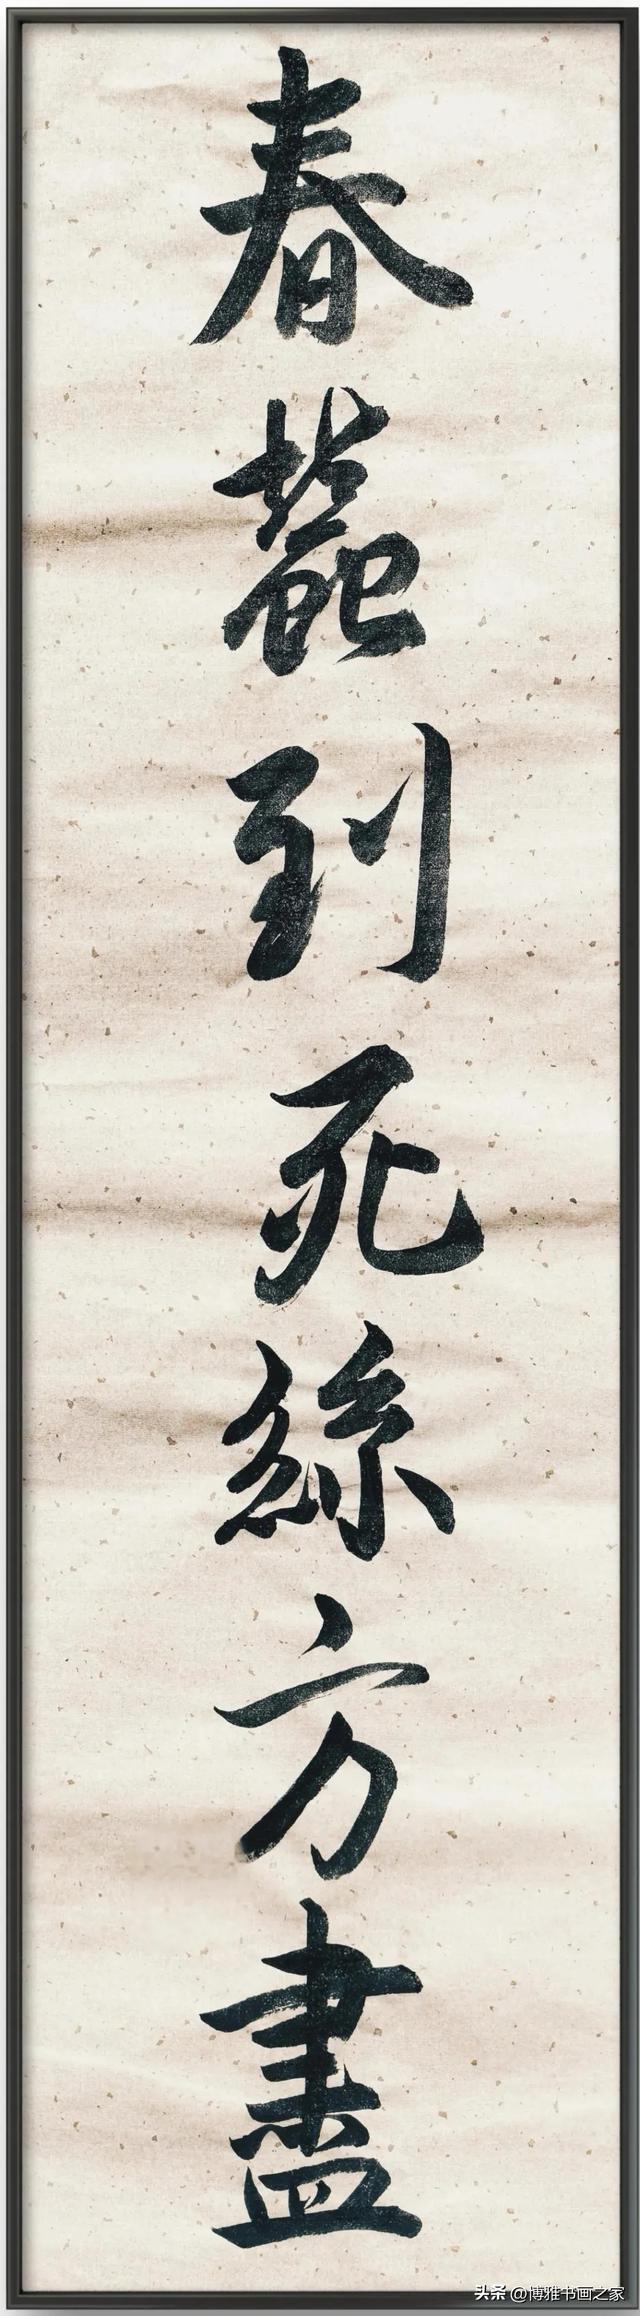 春蠶到死絲方盡
头条 @博雅书画之家